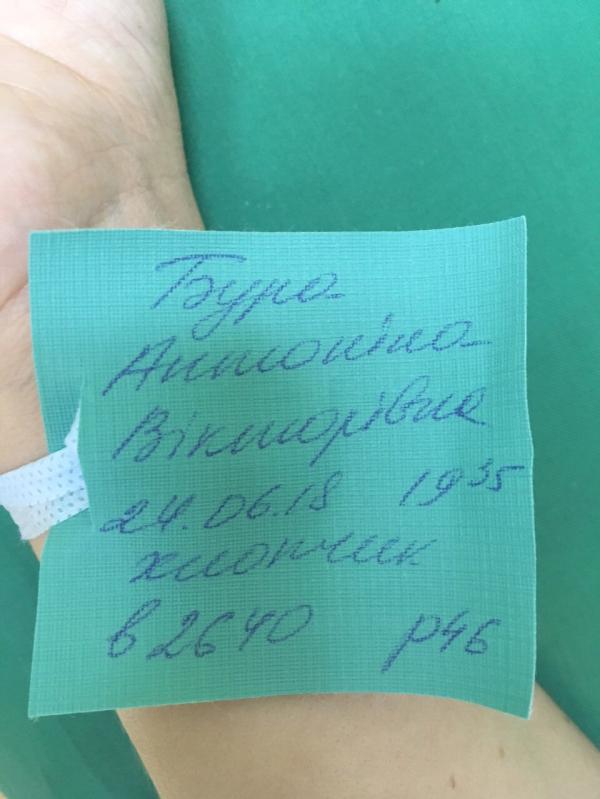 Бура
Антоніна
Вікторівна
24.06.18 19³⁵
хлопчик
в 2640 р46